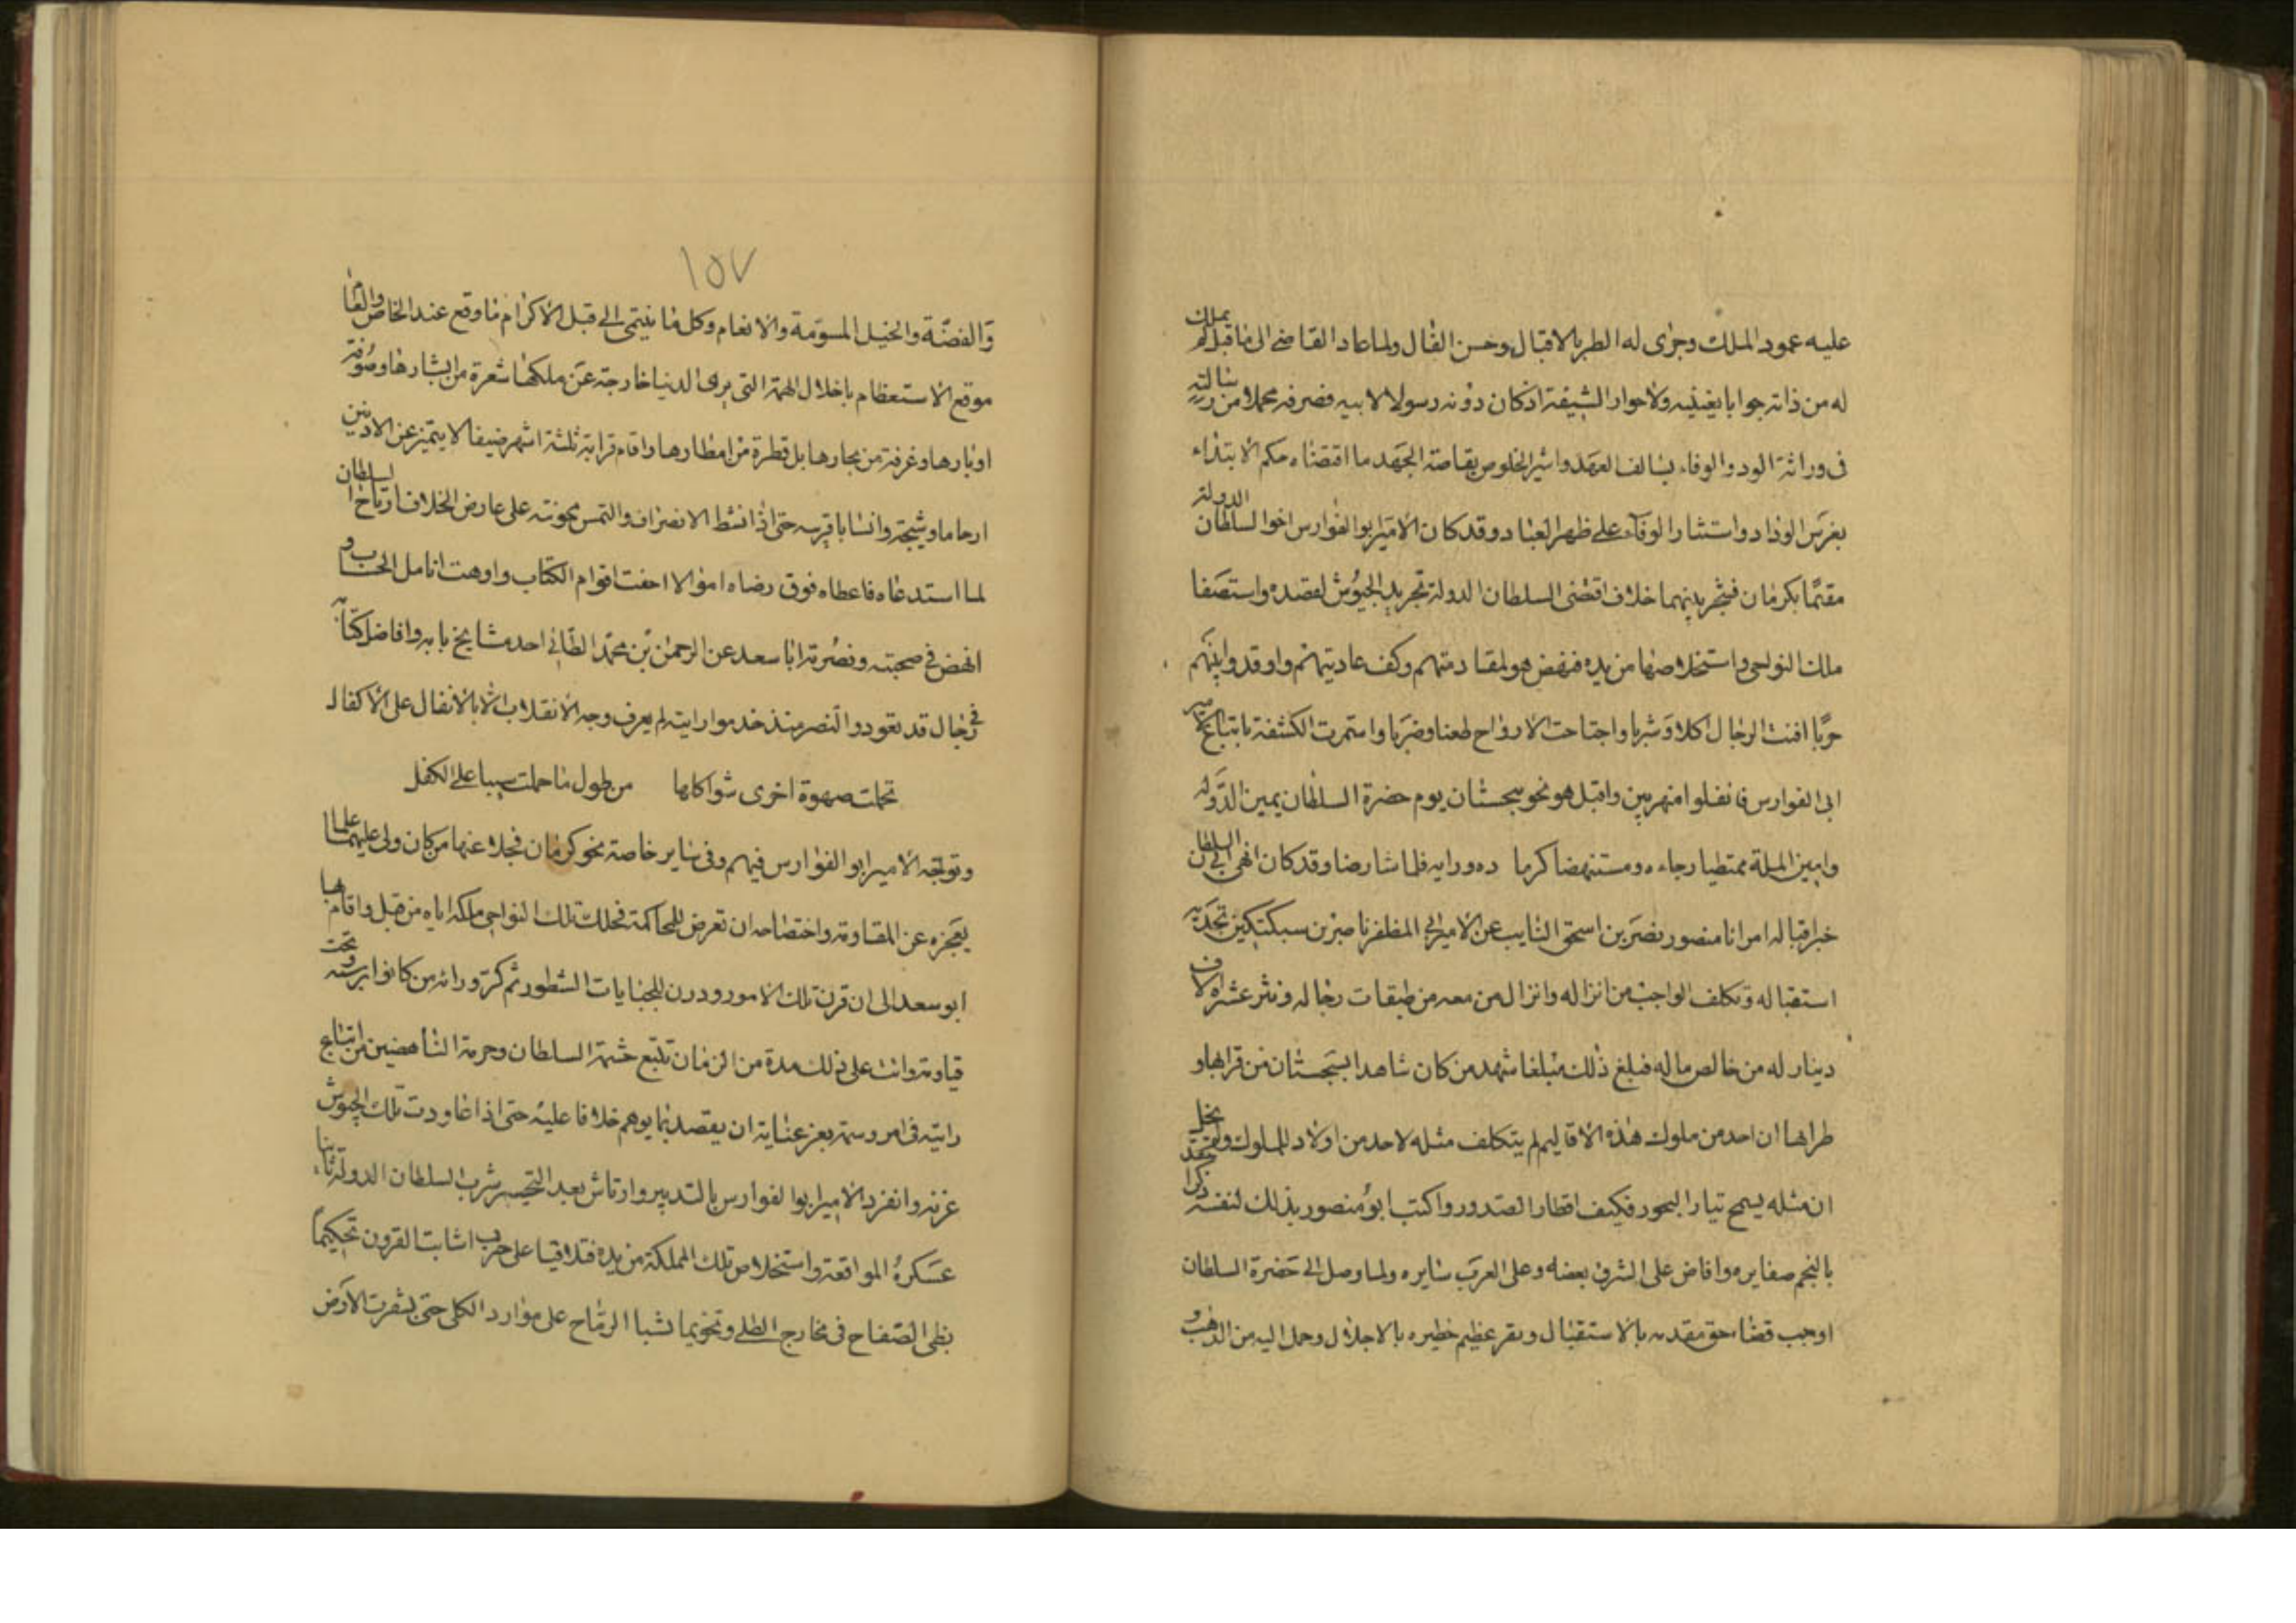 عليه عمود الملك وجرى له الطير بالاقبال وحسن الفال ولما عاد القاضى الى ما قبله لم يملك
له من ذاته جوابا يغنيه ولا حوار الشيفة اذ كان دونه رسولا لابيه فصرفه محملا من رسالته
فى وراثة الود والوفاء بسالف العهد واثير الخلوص بقاصة الجهد ما اقتضاه حكم الابتداء
بغرس الوداد واستشار الوفاء على ظهر البعاد وقد كان الامير ابو الفوارس اخو السلطان الدولة
مقيمًا بكرمان فشجر بينهما خلاف اقتضى السلطان الدولة تجريد الجيوش لقصده واستصفا
ملك النواحى واستخلاصها من يده فنهض هو لمقادمتهم وكف عاديتهم واوقدوا بينهم
حربًا افنت الرجال اكلا وشربا واجتاحت الارواح طعنا وضربا واستمرت الكشفة باتباع الامير
ابى الفوارس فانفلوا منهزمين واقبل هو نحو سجستان يوم حضرة السلطان يمين الدولة
وامين الملة ممتطيا رجاءه ومستنهضا كرما ده ورايه فلما شارضا وقد كان انهى الى السلطان
خبر اقباله امر ابا منصور نصر بن اسحق النايب عن الامير ابى المظفر ناصر بن سبكتكين تجديه
استقباله وتكلف الواجب من انزاله وانزال من معه من طبقات رجاله ونثر عشرة الاف
دينار له من خالص ماله فبلغ ذلك مبلغا شهد من كان شاهدا بسجستان من قراها و
طرابها ان احد من ملوك هذه الاقاليم لم يتكلف مثله لاحد من اولاد الملوك ولم يخل
ان مثله يسمح تيار البحور فكيف اقطار الصدور واكتب ابو منصور بذلك لنفسه ذكرا
بالنجم صفايره وافاض على الشرق بعضه وعلى العرب سايره ولما وصل الى حضرة السلطان
اوجب قضاء حق مقدمه بالاستقبال وبقر عظيم خطيره بالاجلال وحمل اليه من الذهب و
١٥٧
والفضّة والخيل المسوّمة والانعام وكل ما ينتمى الى قبل الاكرام ما وقع عند الخاص والعام
موقع الاستعظام باخلال الهمة التى يرى الدنيا خارجة عن ملكها شعرة من ابشارها وصوفة
اوبارها وغرفة من بحارها بل قطرة من امطارها واقام قرابة ثلثة اشهر ضيفا لا يتميز عن الادنين
ارحاما وشيجة وانسابا قريبه حتى اذا نشط الانصراف والتمس معونته على عارض الخلاف ارتاح السلطان
لما استدعاه فاعطاه فوق رضاه اموالا احفت اقوام الكتاب واوهت انامل الحساب و
انهض فى صحبته ونصرته ابا سعد عن الرحمن بن محمد الطائى احد مشايخ بابه وافاضل كتابه
فى رجال قد تعودوا النصر منذ خدموا رايته لم يعرف وجه الانقلاب الا بالانفال على الاكفال
تحملت صهوة اخرى شواكلها من طول ما حملت سبيا على الكفل
وتوجّه الامير ابو الفوارس فيهم وفى ساير خاصته نحو كرمان فجلا عنها من كان ولى عليها علما
بعجزه عن المقاومة واختضاحه ان تعرض للمحاكمة فحلت تلك النواحى ملكه اياه من قبل واقام بها
ابو سعد الى ان قرت تلك الامور ودرت للجبايات الشطور ثم كر وراءه من كانوا برسمه وتحت
قيادته واتت على ذلك مدة من الزمان تتبع حشمة السلطان وحرمة الناهضين من اتباع
رايته فى امر وسمه بعز عنايته ان يقصد بما يوهم خلافا عليه حتى اذا عاودت تلك الجيوش
غزنه وانفرد الامير ابو الفوارس بالتدبير وارتاش بعد التحسر شرب السلطان الدولة ثانيا
عسكره المواقعة واستخلاص تلك المملكة من يده فتلاقيا على حرب اشابت القرون تحكيما
بظى الصفاح فى مخارج الطلى وتخويما لشبا الرماح على موارد الكلى حتى بشرت الارض